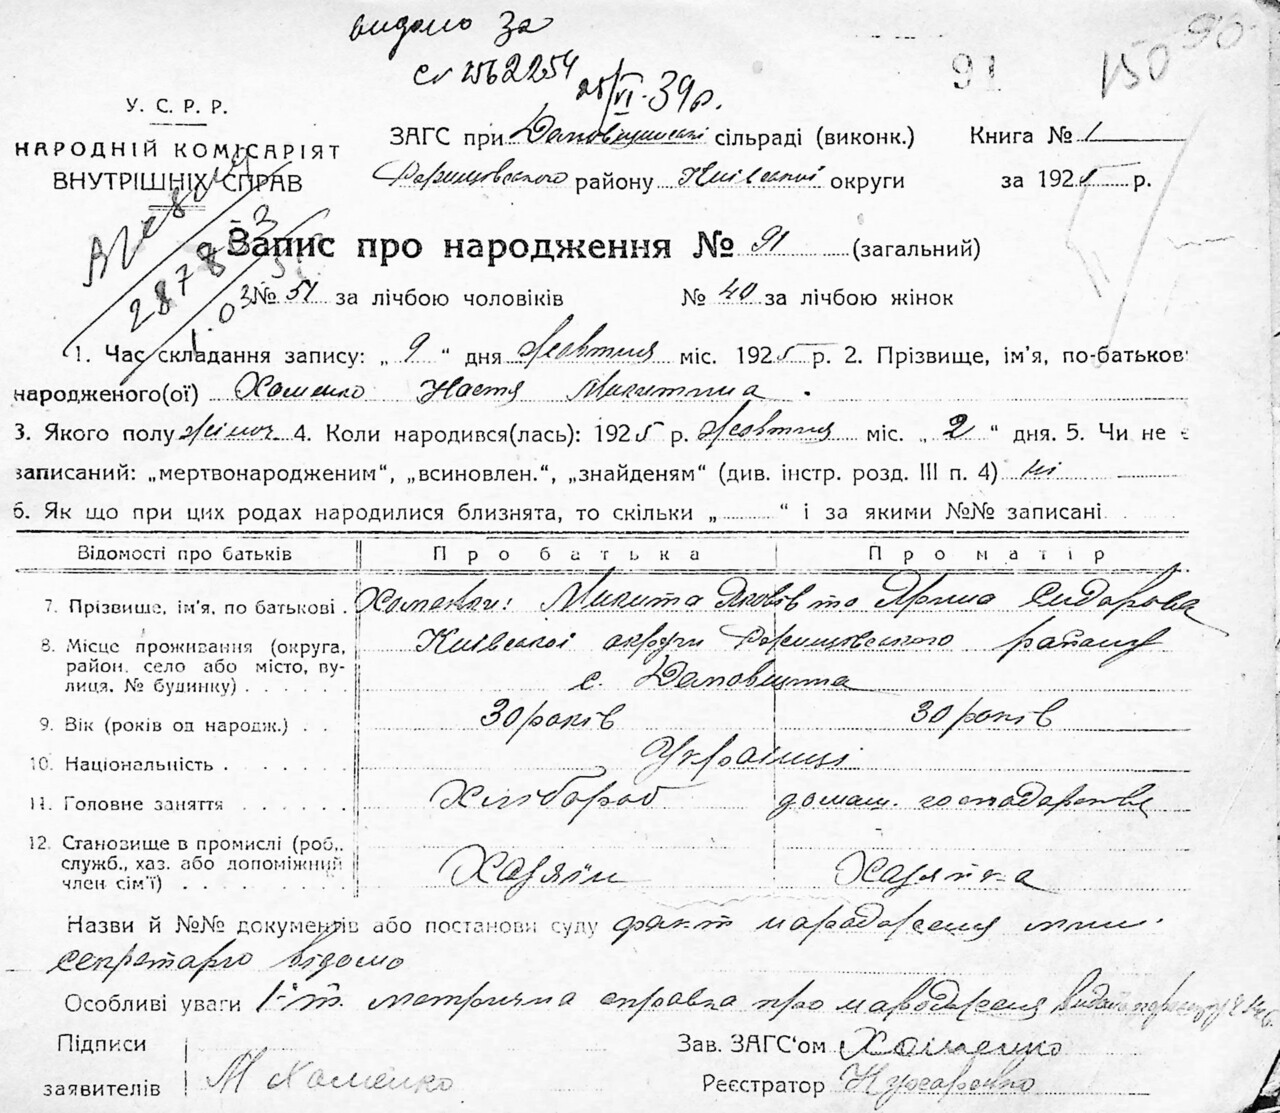 видано за
св №62254
25/VI-39р.
91 150 90
У. С. Р. Р.
НАРОДНІЙ КОМІСАРІЯТ
ВНУТРІШНІХ СПРАВ
ЗАГС при сільраді (виконк.) Книга № 1
району Київської округи за 1925 р.
28783
1.03
Запис про народження № 91 (загальний)
№ 51 за лічбою чоловіків № 40 за лічбою жінок
1. Час складання запису: „ 9 “ дня Жовтня міс. 1925 р. 2. Прізвище, ім’я, по-батькові
народженого(ої) Хоменко Настя Микитина.
3. Якого полу жіноч. 4. Коли народився(лась): 1925 р. Жовтня міс. „ 2 “ дня. 5. Чи не є
записаний: „мертвонародженим“, „всиновлен.“, „знайденям“ (див. інстр. розд. III п. 4) ні
6. Як що при цих родах народилися близнята, то скільки „ “ і за якими №№ записані
Відомості про батьків Про батька Про матір
7. Прізвище, ім’я, по батькові . Хоменки: Микита Яковів та Ярина Сидорова
8. Місце проживання (округа, Київської округи району
район, село або місто, ву-
лиця, № будинку) с.
9. Вік (років од народж.) . . 30 років 30 років
10. Національність Українці
11. Головне заняття Хлібороб домаш. господарства
12. Становище в промислі (роб.,
служб., хаз. або допоміжний Хазяїн Хазяйка
член сім’ї)
Назви й №№ документів або постанови суду факт народження
секретарю відомо
Особливі уваги метрична справка про народження
Підписи Зав. ЗАГС‘ом Хоменко
заявителів М Хоменко Реєстратор